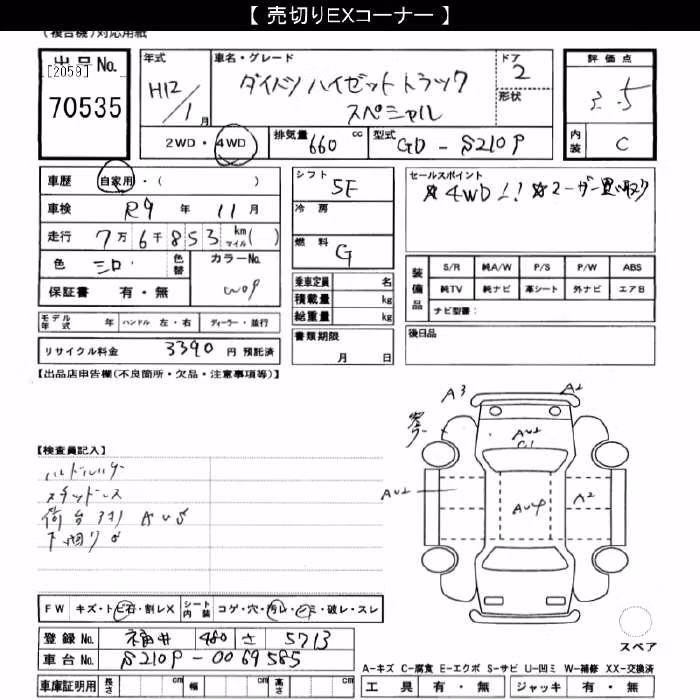 【 売切りEXコーナー 】
(複合機)対応用紙
出品No. [2059] 70535
年式 H12/1月
車名・グレード ダイハツ ハイゼットトラック スペシャル
ドア 2
形状
評価点 3.5
内装 C
2WD・4WD
排気量 660 cc
型式 GD-S210P
車歴 自家用・( )
車検 R9年 11月
走行 7万6千853 km マイル( )
色 シロ 色替
カラーNo. W09
保証書 有・無
シフト 5F
冷房
燃料 G
乗車定員 名
積載量 kg
総重量 kg
セールスポイント
☆4WD!! ☆ユーザー買取り
装備品 S/R 純A/W P/S P/W ABS
純TV 純ナビ 革シート 外ナビ エアB
ナビ型番:
モデル年式 年 ハンドル 左・右 ディーラー・並行
書類期限 月 日
後日品
リサイクル料金 3390 円 預託済
【出品店申告欄(不良箇所・欠品・注意事項等)】
A3 A2
AU2
C1
【検査員記入】
AU2 AU4 A2
荷台 AU5
下廻りS
FW キズ・ト ビ石・割レX シート内装 コゲ・穴・汚レ・シミ・破レ・スレ
登録No. 福井 480 さ 5713
車台No. S210P-0069585
スペア
A−キズ C−腐食 E−エクボ S−サビ U−凹ミ W−補修 XX−交換済
車庫証明用 長さ cm 幅 cm 高さ cm
工具 有・無 ジャッキ 有・無